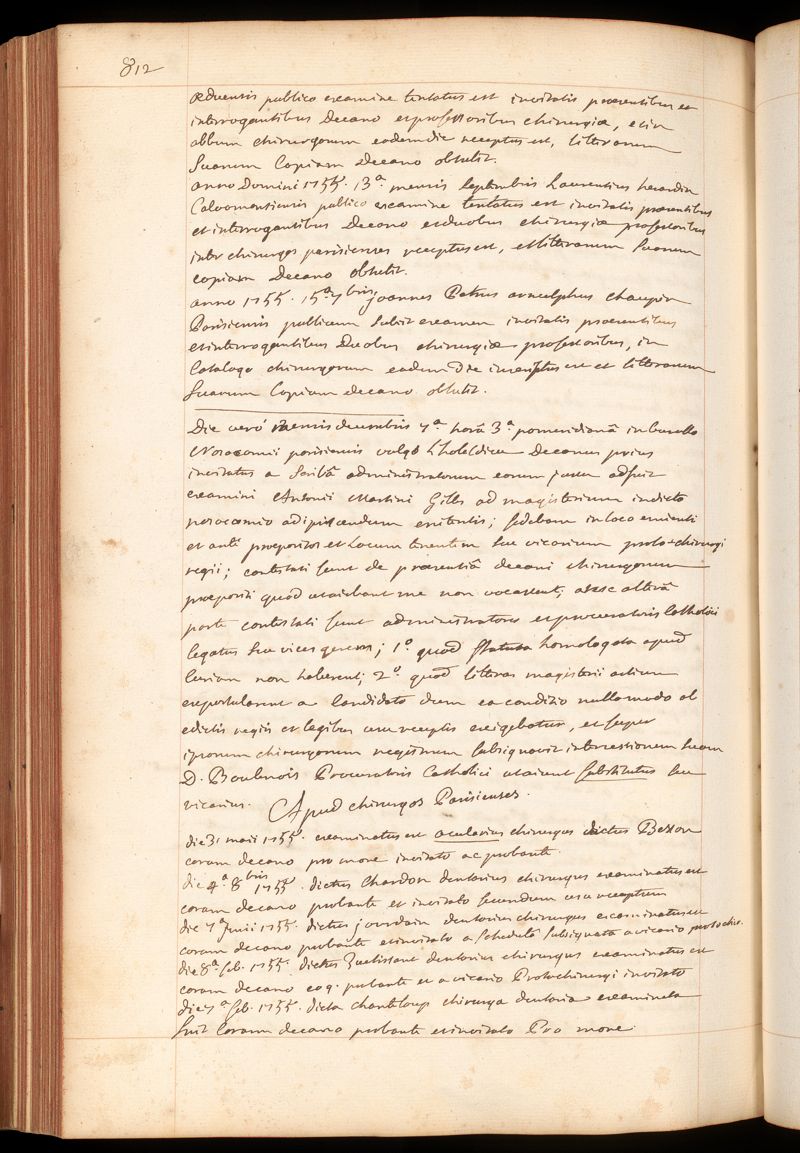 812
æduensis publico examine tentatus est invitatis præsentibus et
interrogantibus Decano et professoribus chirurgiæ, et in
album chirurgorum eadem die receptus est, litterarum
suarum Copiam Decano obtulit.
anno Domini 1755. 13.ª mensis septembris Laurentius
publico examine tentatus est invitatis præsentibus
et interrogantibus Decano et duobus chirurgiæ professoribus
inter chirurgos parisienses receptus est, et litterarum suarum
copiam Decano obtulit.
anno 1755. 15.ª 7bris, joannes Petrus arnulphus
Parisiensis publicum subiit examen invitatis præsentibus
et interrogantibus Duobus chirurgiæ professoribus, in
Catalogo chirurgorum eadem Die inscriptus est et litterarum
suarum Copiam decano obtulit.
Die verò mensis decembris 7.ª horâ 3.ª pomeridianâ in burello
Nosocomii parisiensis vulgò L'hoteldieu Decanus prius
invitatus a scribâ administratorum eorum jussu adfuit
examini Antonii Martini Gilles ad magisterium indicto
nosocomio adipiscendum enitentis; sedebam in loco eminenti
et antè præpositos et Locum tenentem seu vicarium proto-chirurgi
regii; contestati sunt de præsentiâ decani chirurgorum
præpositi quòd utaiebant me non vocassent; atsic alterâ
parte contestati sunt administratores et procuratoris Catholici
legatus seu vices gerens; 1.º quòd statuta homologata apud
Curiam non haberent; 2.º quòd litteras magisterii artium
expostularent a Candidato dum ea conditio nullomodo ab
edictis regiis et legibus usu receptis exigebatur, et super
ipsorum chirurgorum registrum subsignavit intercessionem suam
D. Boulenois Procuratoris Catholici utaiunt substitutus seu
vicarius. Apud chirurgos Parisienses.
die 31 maii 1755. examinatus est ocularius chirurgus dictus
coram decano pro more invitato ac probante.
die 4.ª 8bris 1755. dictus Chardon dentarius chirurgus examinatus est
coram decano probante et invitato secundum usu receptum
die 7.ª junii 1755. dictus jourdain dentarius chirurgus examinatus est
coram decano probante et invitato a schedulâ subsignata a vicario protochir.
die 8.ª feb. 1755. dictus dentarius chirurgus examinatus est
coram decano eoq. probante et a vicario Protochirurgi invitato
die 7.ª feb. 1755. dicta chanteloup chirurga dentaria examinata
fuit Coram decano probante et invitato Pro more.